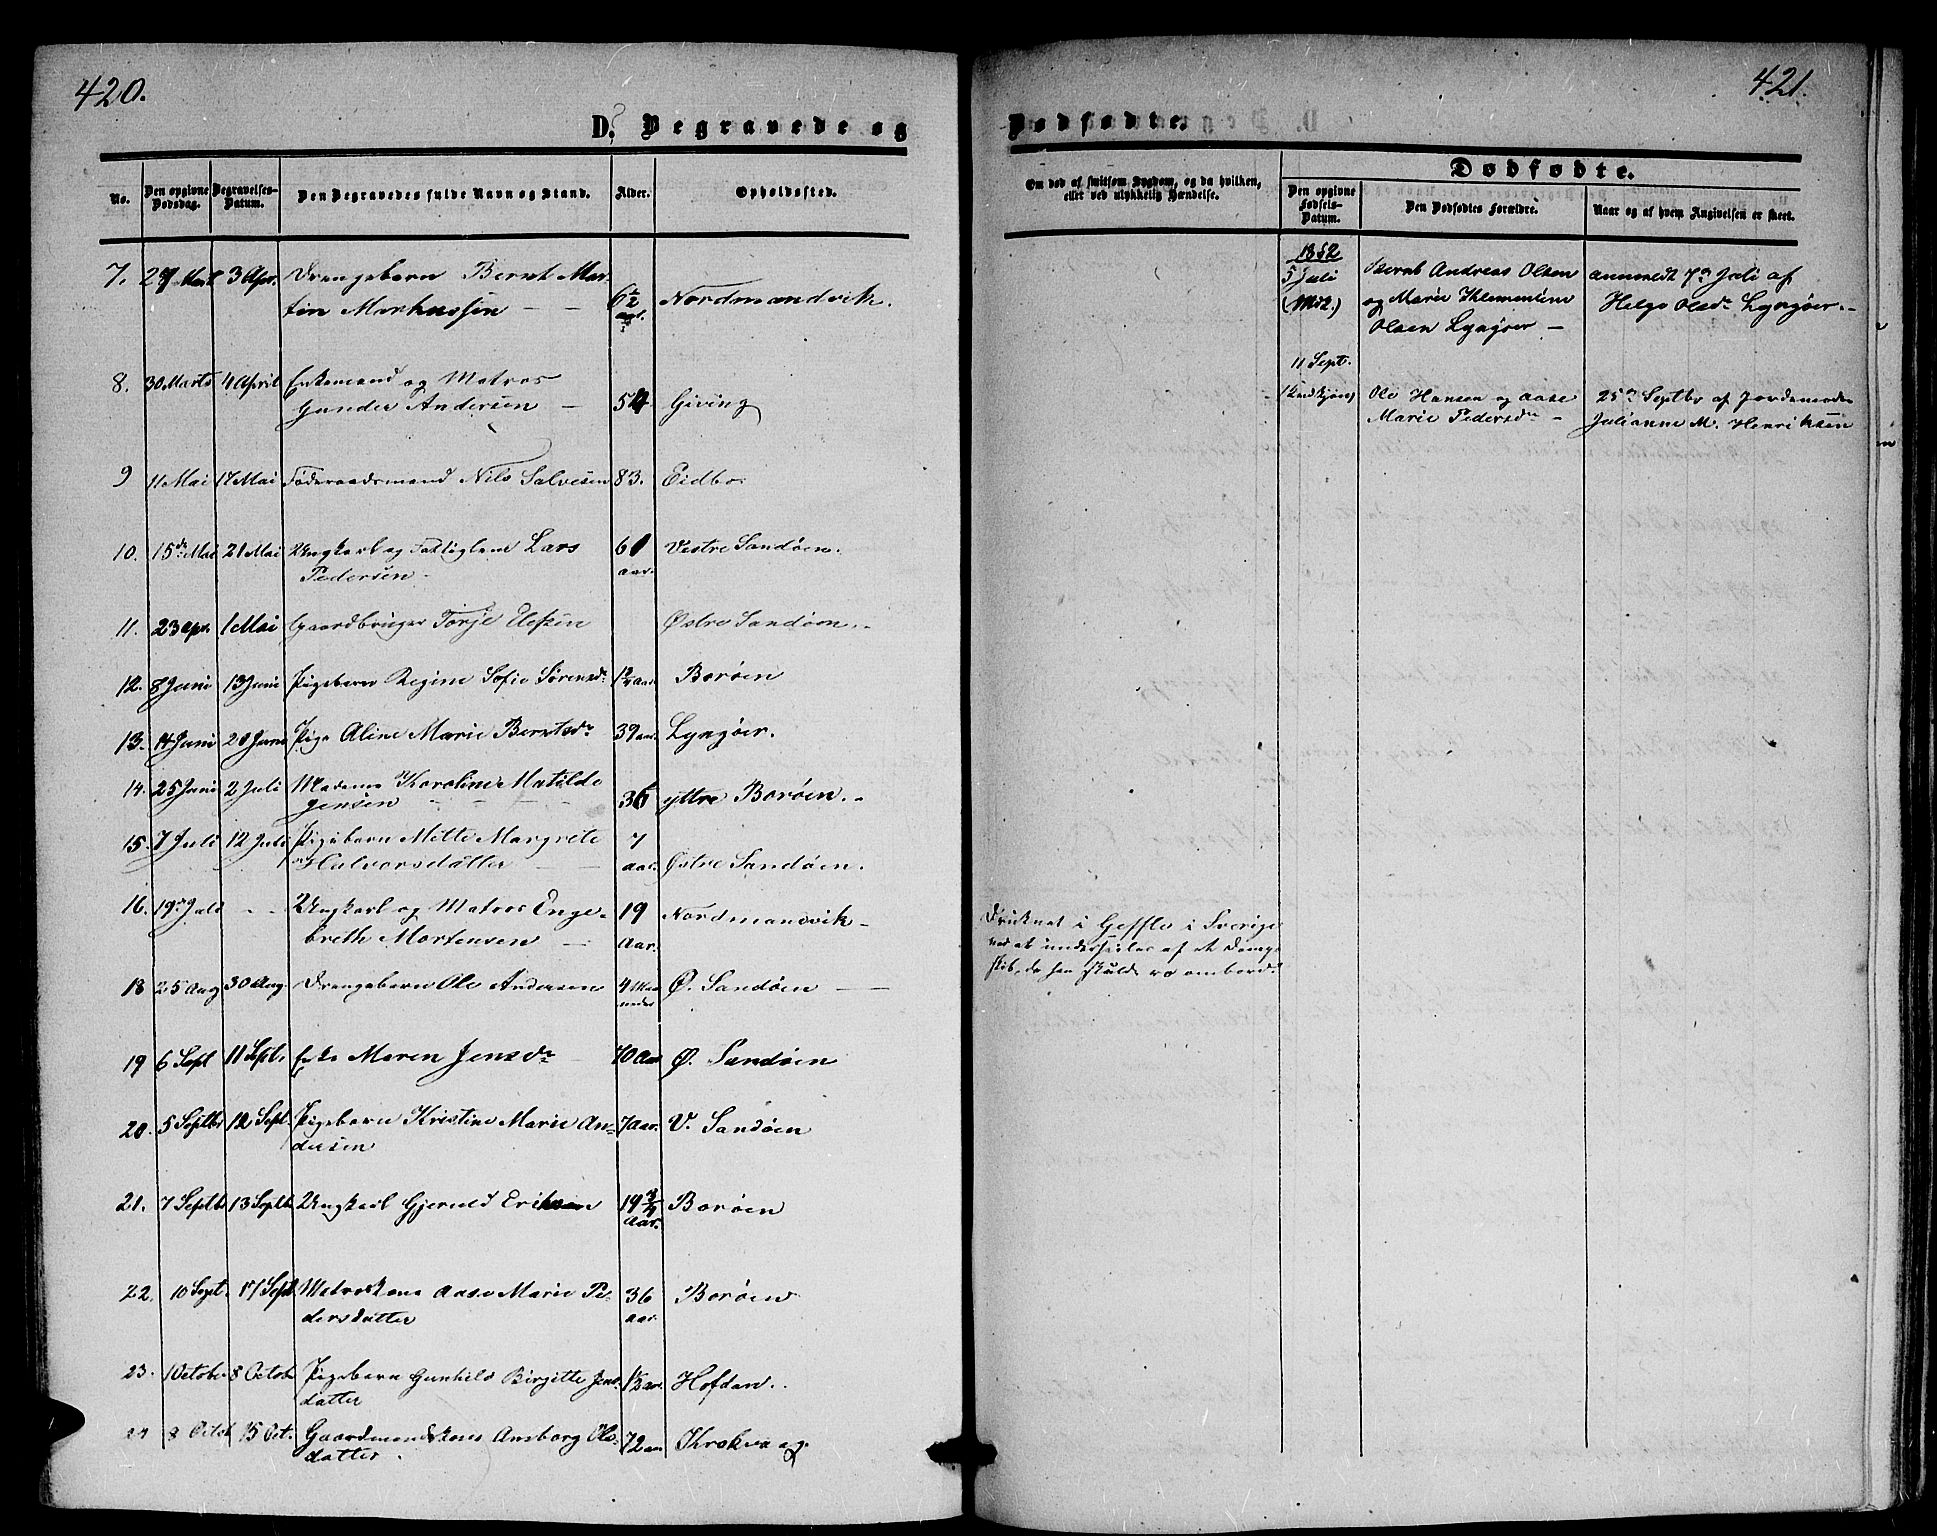 420.
D. Begravede og
No. Den opgivne Dødsdag. Begravelses-Datum. Den Begravedes fulde Navn og Stand. Alder. Opholdssted.
7. 29 Mart 3 Apr. Drengebarn Bernt Mar-
tin Markussen 6½ Nordmandvik.
8. 30 Marts 4 April Enkemand og Matros
Gunder Andersen 54 Giving
9 11 Mai 17 Mai Føderaadsmand Nils Salvesen 83. Eidbo
10. 15de Mai 21 Mai Ungkarl og Fattiglem Lars 61 Vestre Sandøen.
Pedersen aar.
11. 23 Apr. 1 Mai Gaardbruger Torje Elefsen Østre Sandøen.
12. 8 Juni 13 Juni Pigebarn Regine Sofie Sørensdr Borøen
13. 14 Juni 20 Juni Pige Aline Marie Berntsdr 39 aar. Lyngøer.
14. 25 Juni 2 Juli Madame Karoline Matilde
Jensen 36 yttre Borøen.
15. 7 Juli 12 Juli Pigebarn Mette Margrete 7
Halvorsdatter aar. Østre Sandøen.
16. 19de Juli - - Ungkarl og Matros Enge- 19 Nordmandvik
breth Mortensen Aar.
18 25 Aug 30 Aug. Drengebarn Ole Andersen 4 Maaneder Ø. Sandøen
19 6 Sept 11 Septb. Enke Maren Jensdr 70 Aar Ø. Sandøen
20. 5 Septbr 12 Sept. Pigebarn Kristine Marie An- 7 Aar. V. Sandøen
dersen
21. 7 Septbr 13 Septbr Ungkarl Gjeruld Eriksen 19¾ Borøen
Aar.
22. 10 Sept. 17 Sept Matroskone Aase Marie Pe- 36 Borøen
dersdatter aar.
23. 1 Octobe 8 Octob Pigebarn Gunhild Birgitte Jens- 1½ aar. Hofdan.
datter
24 8 Octob 15 Oct. Gaardmandskone Ansborg Ols- 72 aar Krokvaag.
datter.
421.
Dødfødte.
Om død af smitsom Sygdom, og da hvilken,
eller ved ulykkelig Hændelse.
Dødfødte.
Den opgivne Fødsels-Datum. Den Dødfødtes Forældre. Naar og af hvem Angivelsen er skeet.
1852
5 Juli Bernt Andreas Olsen anmeldt 7de Juli af
og Marie Klementine Helge Olsdr Lyngøer.
Olsen Lyngøer
11 Sept.
Ole Hansen og Aase 25de Septbr af Jordemoder
Marie Pedersdr Julianne M. Henriksen
Druknet i Geffle i Sverige
ved at underseiles af et Damp-
skib, da han skulde ro ombord.